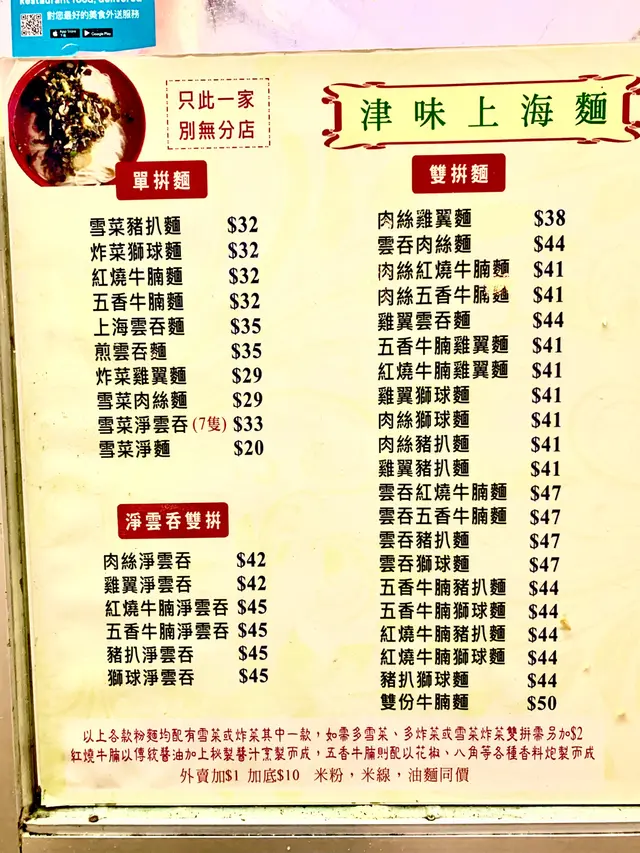 Restaurant food, delivered
對您最好的美食外送服務
App Store
Google Play
只此一家
別無分店
津味上海麵
單拼麵
雪菜豬扒麵 $32
炸菜獅球麵 $32
紅燒牛腩麵 $32
五香牛腩麵 $32
上海雲吞麵 $35
煎雲吞麵 $35
炸菜雞翼麵 $29
雪菜肉絲麵 $29
雪菜淨雲吞(7隻) $33
雪菜淨麵 $20
淨雲吞雙拼
肉絲淨雲吞 $42
雞翼淨雲吞 $42
紅燒牛腩淨雲吞 $45
五香牛腩淨雲吞 $45
豬扒淨雲吞 $45
獅球淨雲吞 $45
雙拼麵
肉絲雞翼麵 $38
雲吞肉絲麵 $44
肉絲紅燒牛腩麵 $41
肉絲五香牛腩麵 $41
雞翼雲吞麵 $44
五香牛腩雞翼麵 $41
紅燒牛腩雞翼麵 $41
雞翼獅球麵 $41
肉絲獅球麵 $41
肉絲豬扒麵 $41
雞翼豬扒麵 $41
雲吞紅燒牛腩麵 $47
雲吞五香牛腩麵 $47
雲吞豬扒麵 $47
雲吞獅球麵 $47
五香牛腩豬扒麵 $44
五香牛腩獅球麵 $44
紅燒牛腩豬扒麵 $44
紅燒牛腩獅球麵 $44
豬扒獅球麵 $44
雙份牛腩麵 $50
以上各款粉麵均配有雪菜或炸菜其中一款，如需多雪菜、多炸菜或雪菜炸菜雙拼需另加$2
紅燒牛腩以傳統醬油加上秘製醬汁烹製而成，五香牛腩則配以花椒、八角等各種香料炮製而成
外賣加$1 加底$10 米粉，米線，油麵同價